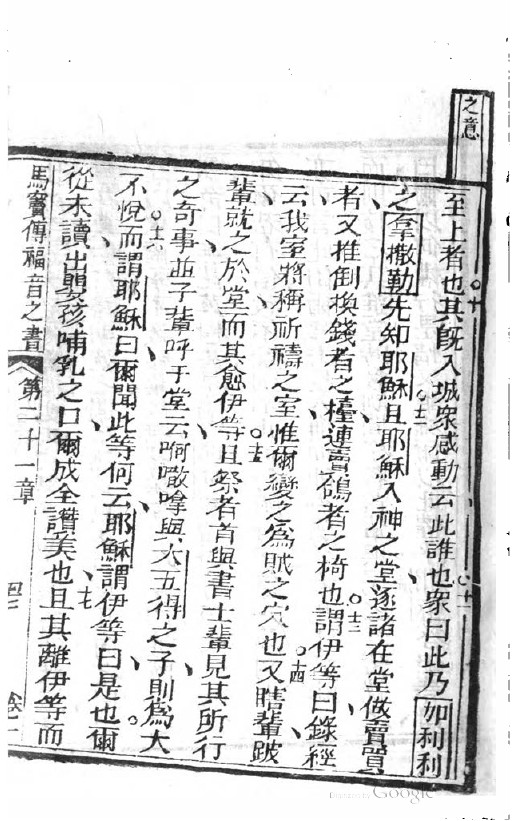 之意
至上者也○十其既入城衆感動云此誰也○十一衆曰此乃如利利
之拿撒勒先知耶穌○十二且耶穌入神之堂逐諸在堂做賣買
者又推倒換錢者之檯連賣鴿者之椅也○十三謂伊等曰錄經
云我室將稱祈禱之室惟爾變之為賊之穴也○十四又瞎輩跛
輩就之於堂而其愈伊等○十五且祭者首與書士輩見其所行
之奇事並子輩呼于堂云㗢嗽嗱與大五得之子則為大
不悅○十六而謂耶穌曰爾聞此等何云耶穌謂伊等曰是也爾
從未讀出嬰孩哺乳之口爾成全讚美也○十七且其離伊等而
馬竇傳福音之書 第二十一章 卷一
Google